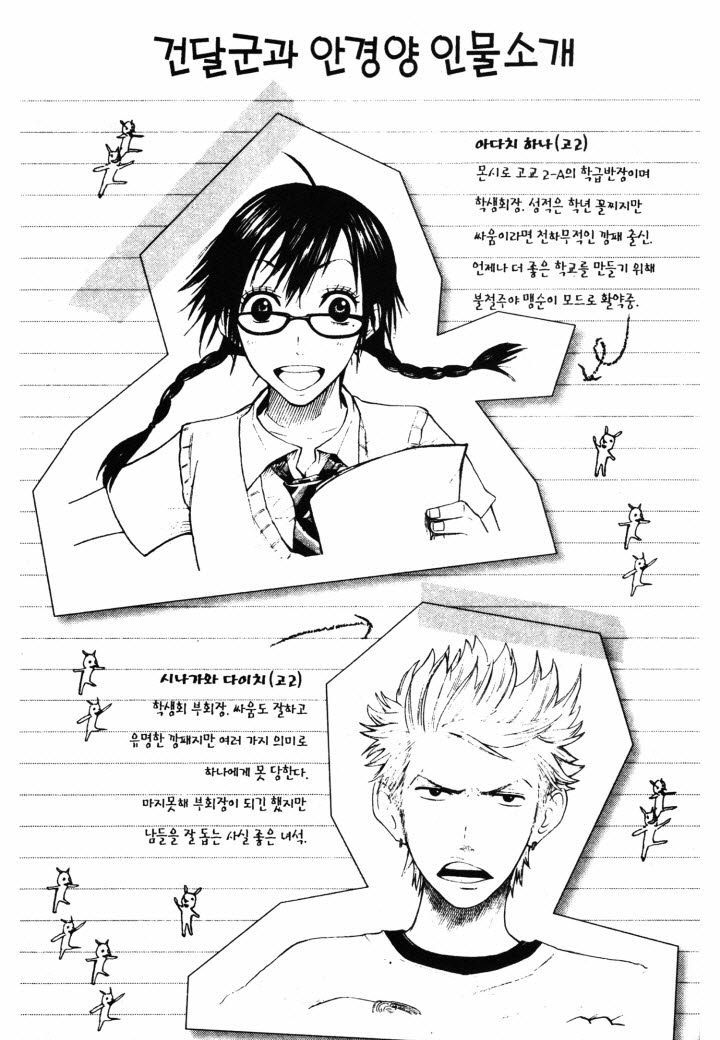 건달군과 안경양 인물소개
아다치 하나(고2)
몬시로 고교 2-A의 학급반장이며
학생회장. 성적은 학년 꼴찌지만
싸움이라면 천하무적인 깡패 출신.
언제나 더 좋은 학교를 만들기 위해
불철주야 맹순이 모드로 활약중.
시나가와 다이치(고2)
학생회 부회장. 싸움도 잘하고
유명한 깡패지만 여러 가지 의미로
하나에게 못 당한다.
마지못해 부회장이 되긴 했지만
남들을 잘 돕는 사실 좋은 녀석.